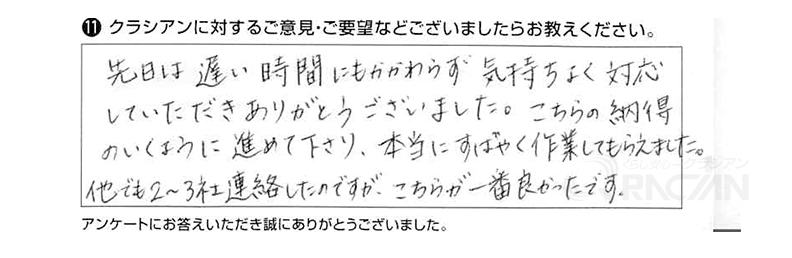 ⓫ クラシアンに対するご意見・ご要望などございましたらお教えください。
先日は遅い時間にもかかわらず気持ちよく対応
していただきありがとうございました。こちらの納得
のいくように進めて下さり、本当にすばやく作業してもらえました。
他でも2~3社連絡したのですが、こちらが一番良かったです。
アンケートにお答えいただき誠にありがとうございました。
くらしあんしんクラシアン
QRACIAN